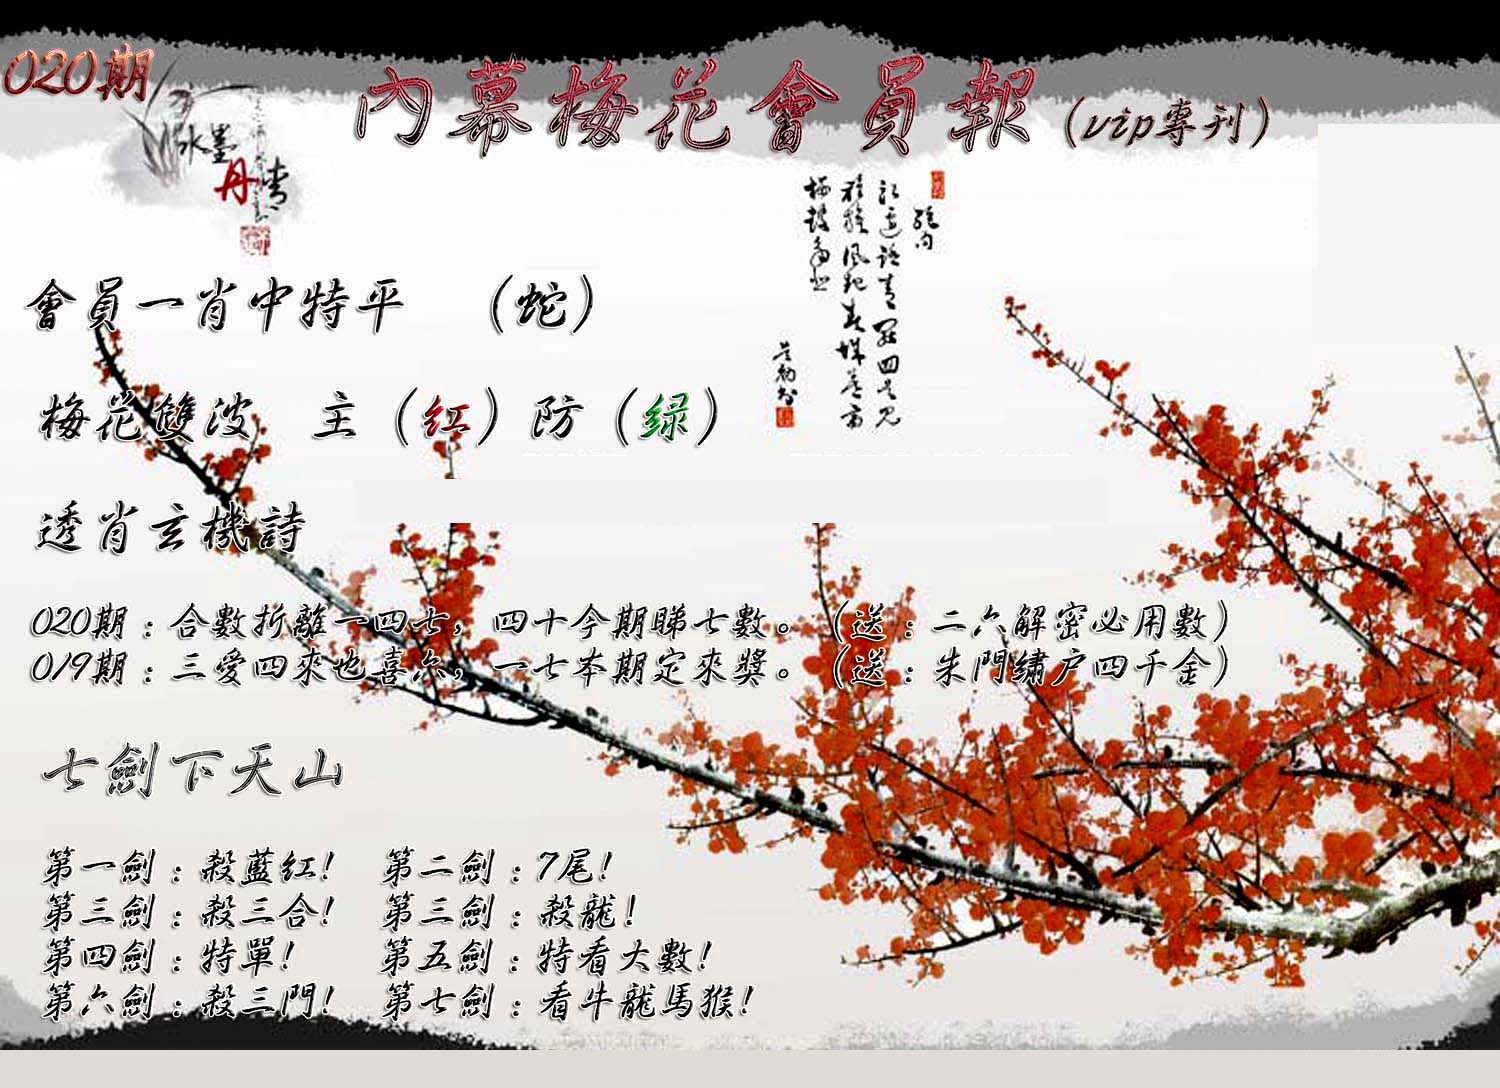 020期
內幕梅花會員報（vip專刊）
水墨
丹青
會員一肖中特平　（蛇）
梅花雙波　主（紅）防（绿）
透肖玄機詩
020期：合數折離一四七，四十今期睇七數。（送：二六解密必用數）
019期：三愛四來也喜六，一七本期定來獎。（送：朱門繡户四千金）
七劍下天山
第一劍：殺藍紅！　第二劍：7尾！
第三劍：殺三合！　第三劍：殺龍！
第四劍：特單！　第五劍：特看大數！
第六劍：殺三門！　第七劍：看牛龍馬猴！